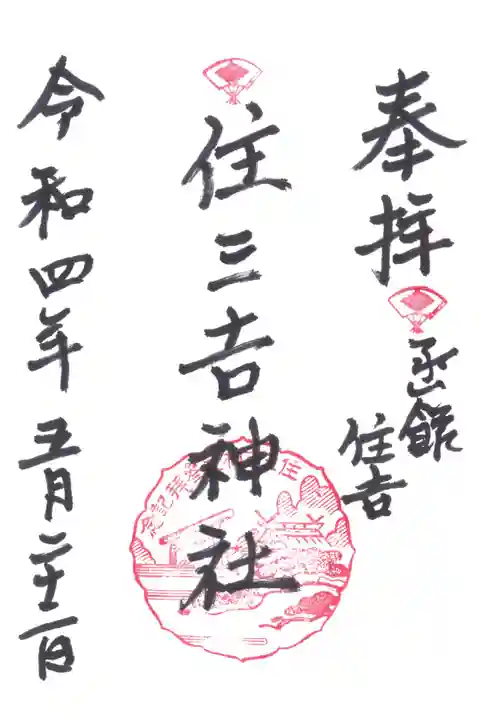 奉拝
函館
住吉
住三吉神社
令和四年五月二十二日